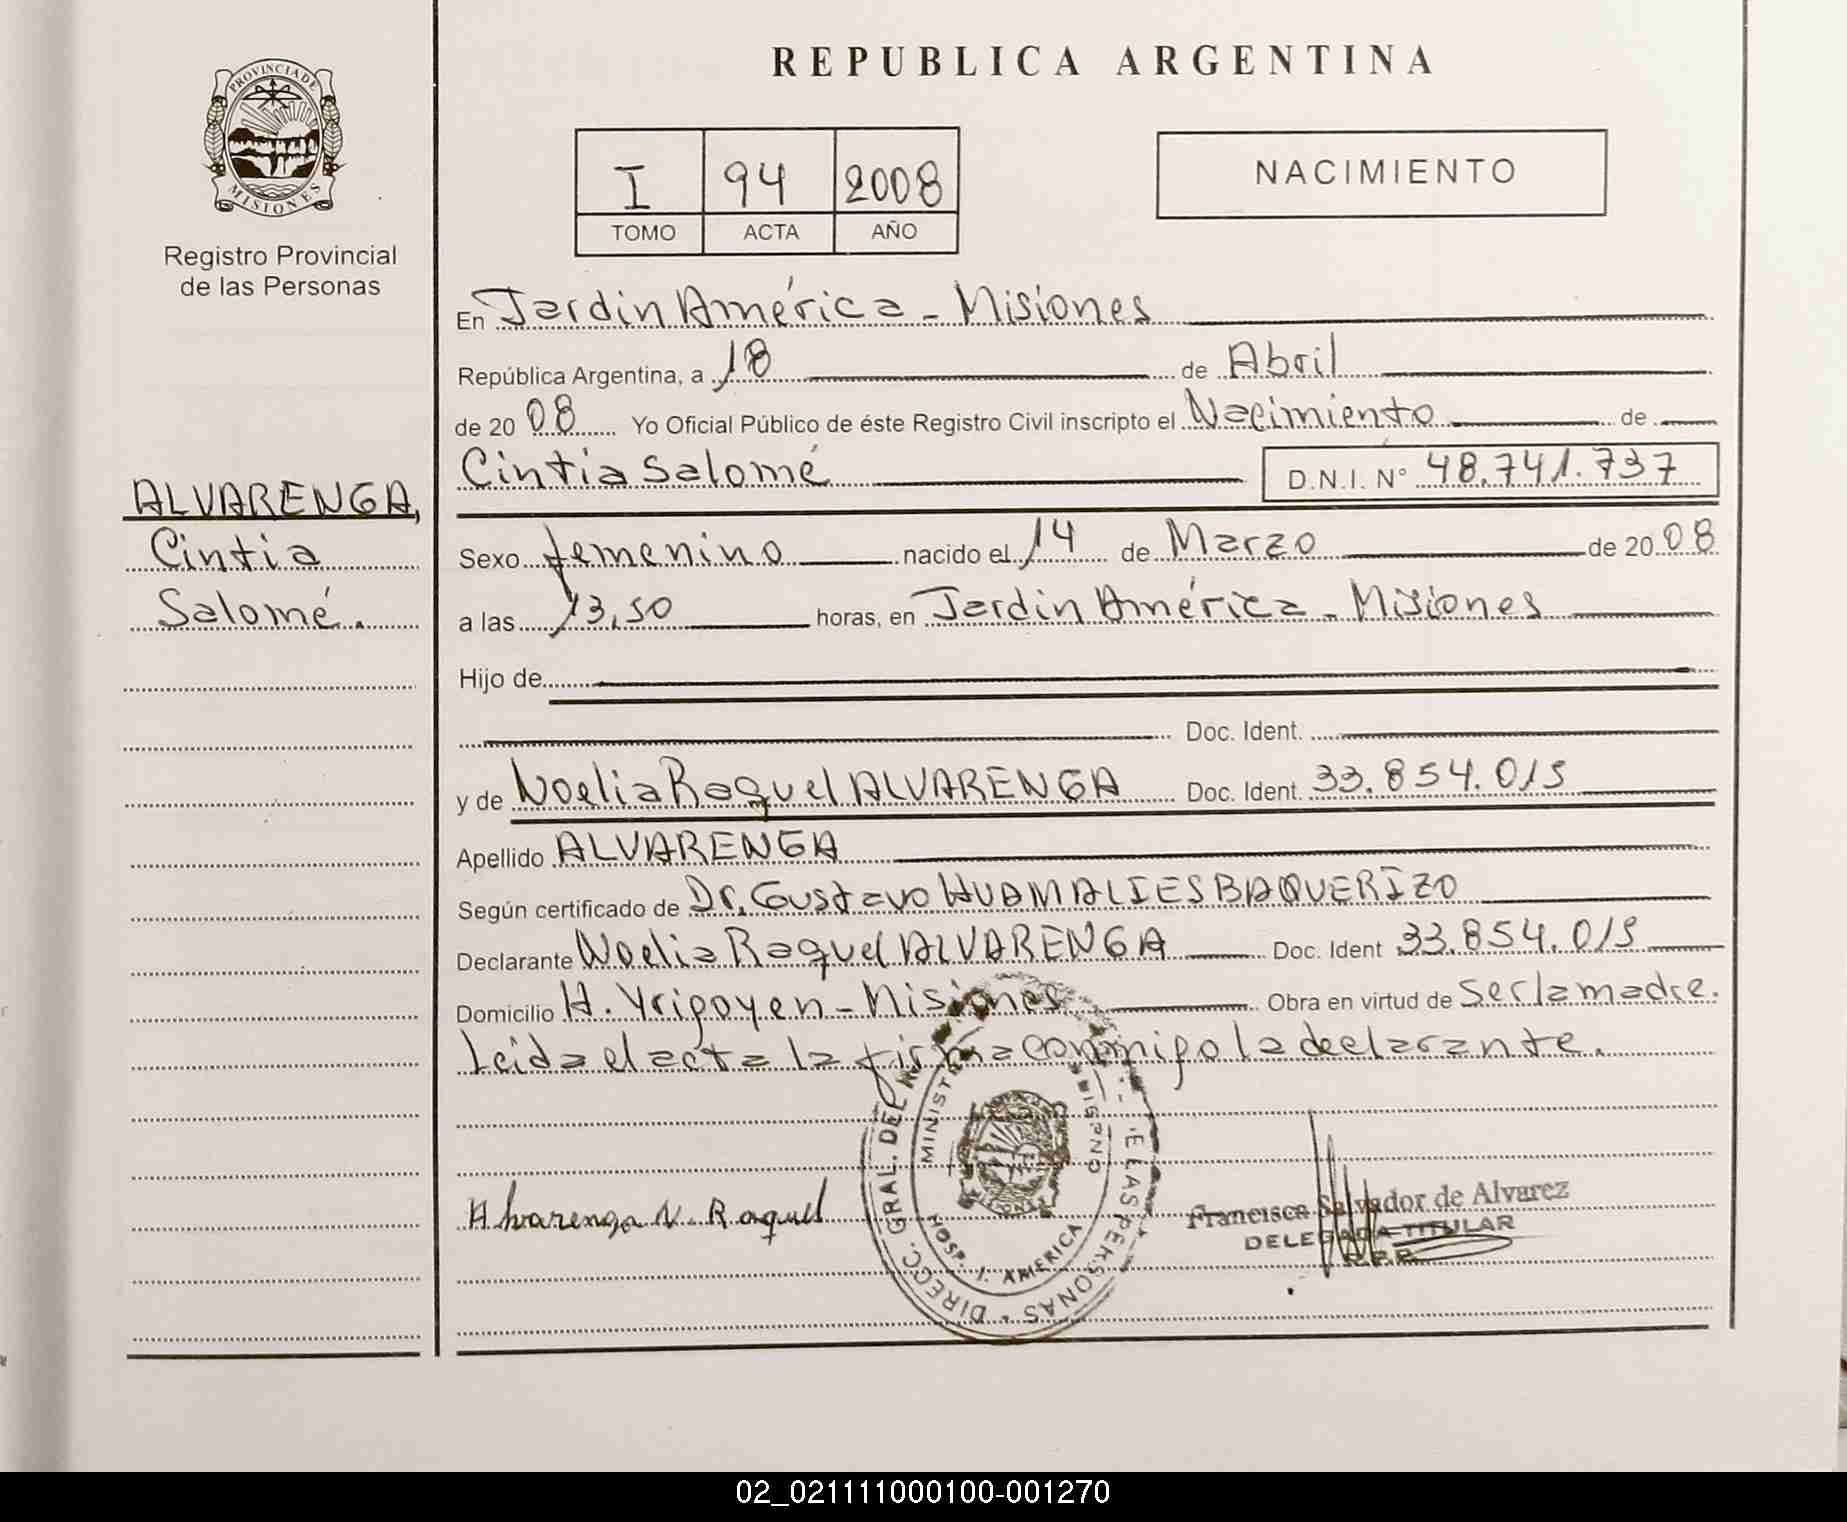 REPUBLICA ARGENTINA
PROVINCIA DE
MISIONES
Registro Provincial
de las Personas
I 94 2008
TOMO ACTA AÑO
NACIMIENTO
En Jardin América - Misiones
República Argentina, a 18 de Abril
de 2008 Yo Oficial Público de éste Registro Civil inscripto el Nacimiento de
Cintia Salomé D.N.I. N° 48.741.737
ALVARENGA,
Cintia
Salomé.
Sexo femenino nacido el 14 de Marzo de 2008
a las 13,50 horas, en Jardin América - Misiones
Hijo de
Doc. Ident.
y de Noelia Raquel ALVARENGA Doc. Ident. 33.854.015
Apellido ALVARENGA
Según certificado de Dr. Gustavo HUAMALIES BAQUERIZO
Declarante Noelia Raquel ALVARENGA Doc. Ident 33.854.015
Domicilio H. Yrigoyen - Misiones Obra en virtud de ser la madre.
Leida el acta la firma conmigo la declarante.
Alvarenga N. Raquel
DIRECC. GRAL. DEL
LAS PERSONAS
HOSP. J. AMERICA
Francisca Salvador de Alvarez
DELEGADA TITULAR
R.P.P.
02_021111000100-001270